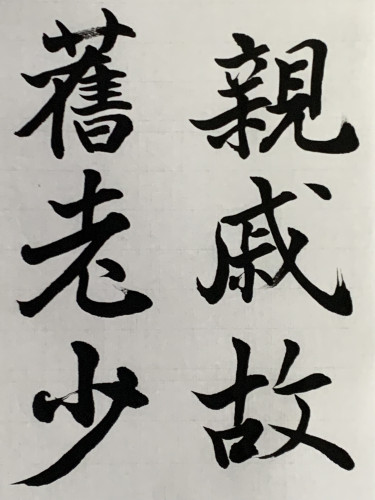 親戚故
舊老少